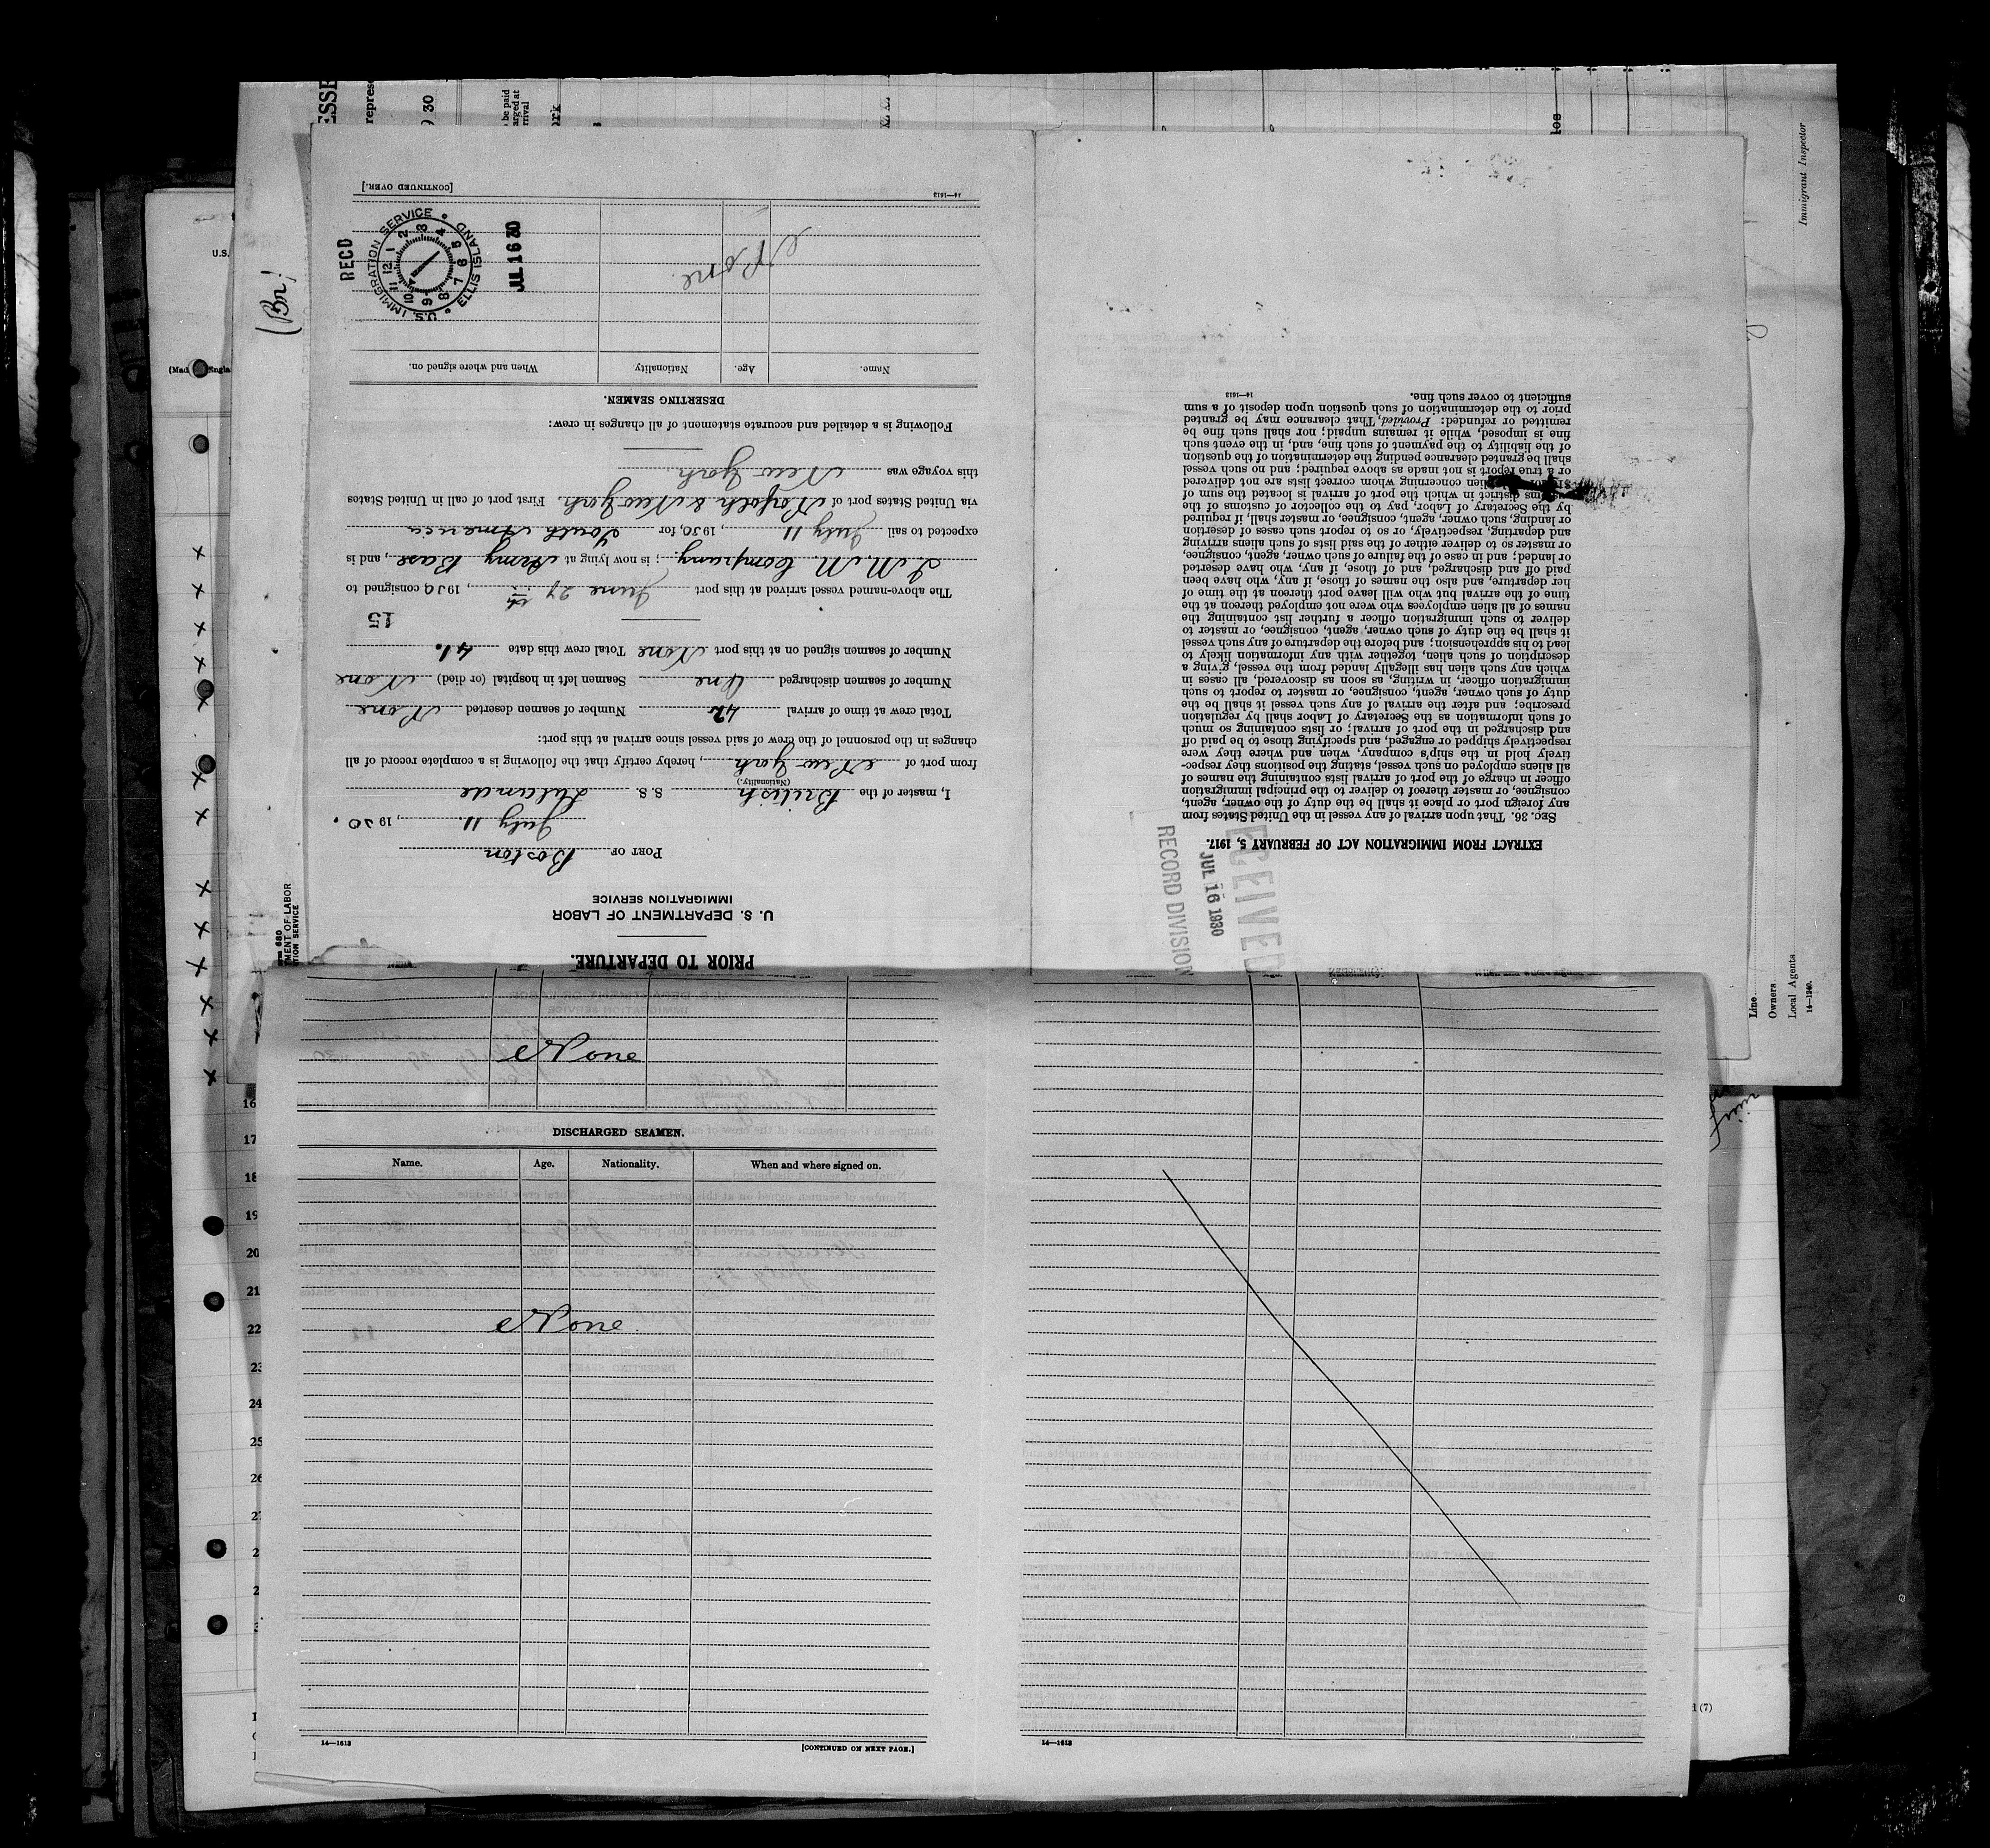 PRIOR TO DEPARTURE.
U. S. DEPARTMENT OF LABOR
IMMIGRATION SERVICE
PORT OF Boston
July 11, 1930.
I, master of the British S. S.
(Nationality.)
from port of New York, hereby certify that the following is a complete record of all
changes in the personnel of the crew of said vessel since arrival at this port:
Total crew at time of arrival 42 Number of seamen deserted None
Number of seamen discharged One Seamen left in hospital (or died) None
Number of seamen signed on at this port None Total crew this date 41.
15
The above-named vessel arrived at this port June 27th, 1930 consigned to
I. M. M. Company.; is now lying at Army Base, and is
expected to sail July 11, 1930, for South America
via United States port of Norfolk & New York. First port of call in United States
this voyage was New York.
Following is a detailed and accurate statement of all changes in crew:
DESERTING SEAMEN.
Name. Age. Nationality When and where signed on.
None.
RECD
U.S. IMMIGRATION SERVICE • ELLIS ISLAND •
1 2 3 4 5 6 7 8 9 10 11 12
JUL 16 30
14—1613 [CONTINUED OVER.]
EXTRACT FROM IMMIGRATION ACT OF FEBRUARY 5, 1917.
SEC. 36. That upon arrival of any vessel in the United States from
any foreign port or place it shall be the duty of the owner, agent,
consignee, or master thereof to deliver to the principal immigration
officer in charge of the port of arrival lists containing the names of
all aliens employed on such vessel, stating the positions they respec-
tively hold in the ship's company, when and where they were
respectively shipped or engaged, and specifying those to be paid off
and discharged in the port of arrival; or lists containing so much
of such information as the Secretary of Labor shall by regulation
prescribe; and after the arrival of any such vessel it shall be the
duty of such owner, agent, consignee, or master to report to such
immigration officer, in writing, as soon as discovered, all cases in
which any such alien has illegally landed from the vessel, giving a
description of such alien, together with any information likely to
lead to his apprehension; and before the departure of any such vessel
it shall be the duty of such owner, agent, consignee, or master to
deliver to such immigration officer a further list containing the
names of all alien employees who were not employed thereon at the
time of the arrival but who will leave port thereon at the time of
her departure, and also the names of those, if any, who have been
paid off and discharged, and of those, if any, who have deserted
or landed; and in case of the failure of such owner, agent, consignee,
or master so to deliver either of the said lists of such aliens arriving
and departing, respectively, or so to report such cases of desertion
or landing, such owner, agent, consignee, or master shall, if required
by the Secretary of Labor, pay to the collector of customs of the
customs district in which the port of arrival is located the sum of
alien concerning whom correct lists are not delivered
or a true report is not made as above required; and no such vessel
shall be granted clearance pending the determination of the question
of the liability to the payment of such fine, and, in the event such
fine is imposed, while it remains unpaid; nor shall such fine be
remitted or refunded: Provided, That clearance may be granted
prior to the determination of such question upon deposit of a sum
sufficient to cover such fine.
14—1613
RECEIVED
JUL 16 1930
RECORD DIVISION
None
DISCHARGED SEAMEN.
Name. Age. Nationality. When and where signed on.
None.
14—1613 [CONTINUED ON NEXT PAGE.]
14—1613
Immigrant Inspector
Line
Owners
Local Agents
14—1240.
16
17
18
19
20
21
22
23
24
25
26